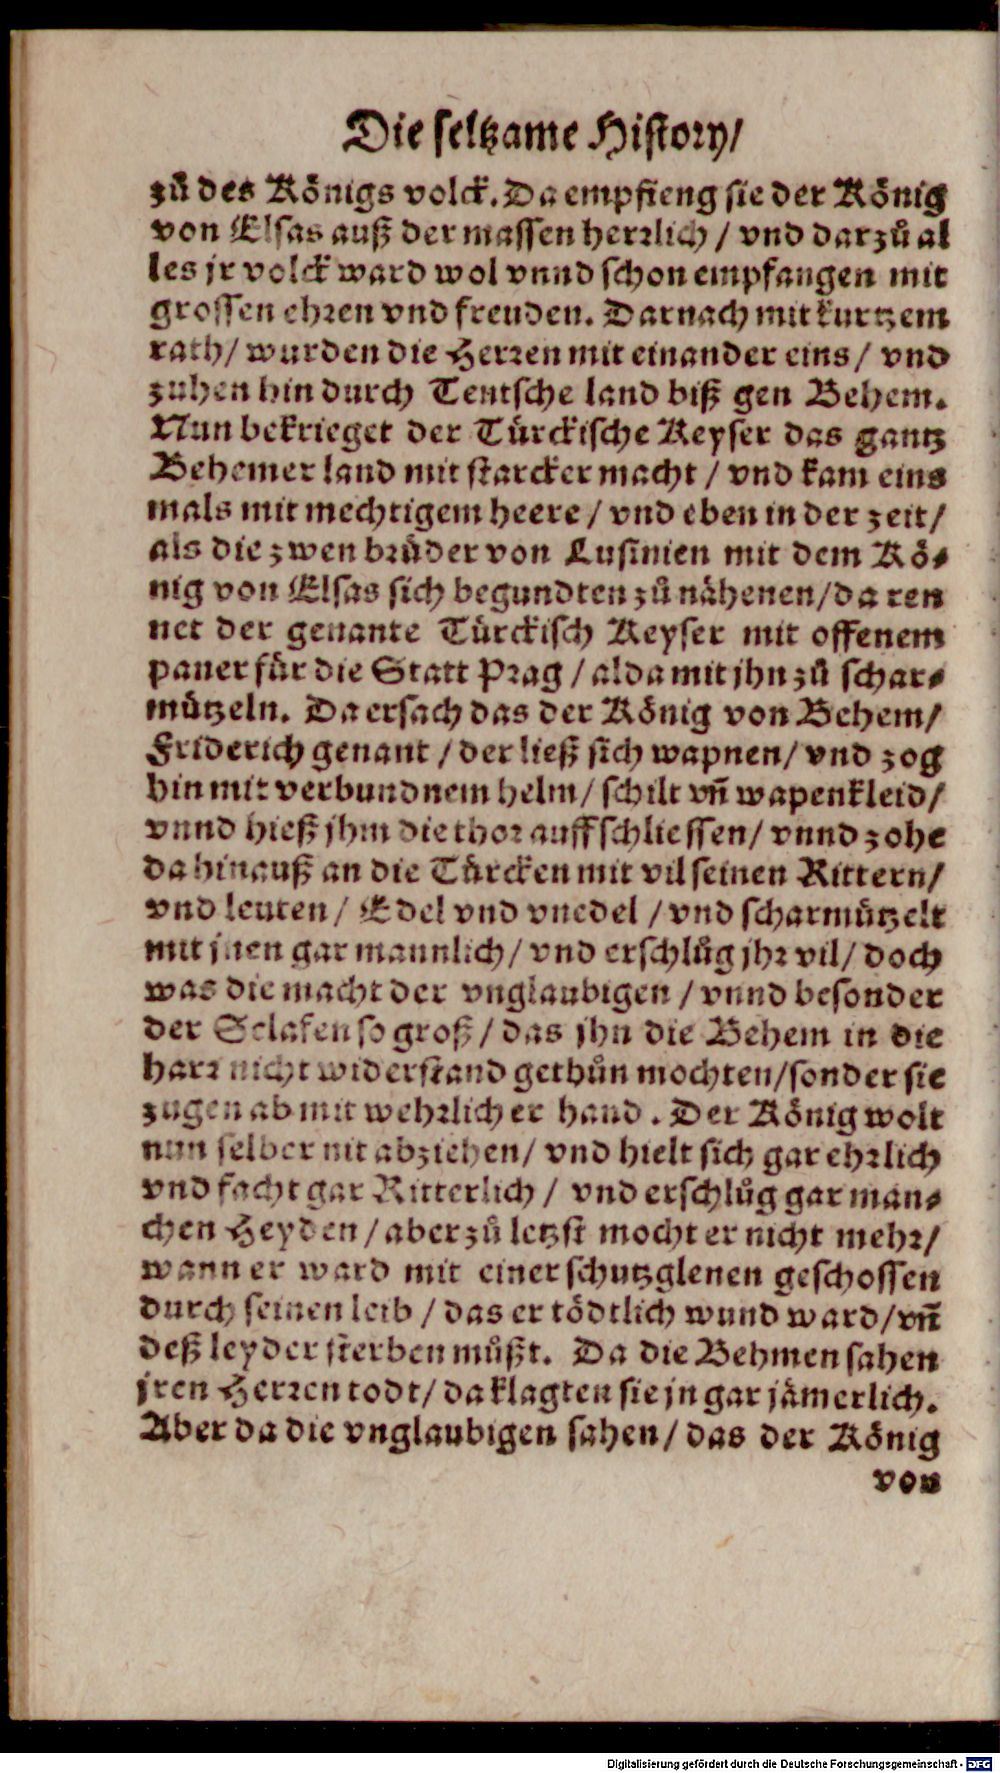 Die seltzame History/
zů des Königs volck. Da empfieng sie der König
von Elsas auß der massen herrlich / vnd darzů al
les jr volck ward wol vnnd schon empfangen mit
grossen ehren vnd freuden. Darnach mit kurtzem
rath/ wurden die Herren mit einander eins/ vnd
zuhen hin durch Teutsche land biß gen Behem.
Nun bekrieget der Türckische Keyser das gantz
Behemer land mit starcker macht / vnd kam eins
mals mit mechtigem heere / vnd eben in der zeit/
als die zwen brüder von Lusinien mit dem Kö⸗
nig von Elsas sich begundten zů nähenen/da ren
net der genante Türckisch Keyser mit offenem
paner für die Statt Prag / alda mit jhn zů schar⸗
mützeln. Da ersach das der König von Behem/
Friderich genant / der ließ sich wapnen/ vnd zog
hin mit verbundnem helm/ schilt vn̄ wapenkleid/
vnnd hieß jhm die thor auffschliessen/ vnnd zohe
da hinauß an die Türcken mit vil seinen Rittern/
vnd leuten/ Edel vnd vnedel / vnd scharmützelt
mit jnen gar mannlich/ vnd erschlůg jhr vil/ doch
was die macht der vnglaubigen / vnnd besonder
der Sclafen so groß / das jhn die Behem in die
harr nicht widerstand gethůn mochten/sonder sie
zugen ab mit wehrlicher hand. Der König wolt
nun selber nit abziehen/ vnd hielt sich gar ehrlich
vnd facht gar Ritterlich / vnd erschlůg gar man⸗
chen Heyden / aber zů letzst mocht er nicht mehr/
wann er ward mit einer schutzglenen geschossen
durch seinen leib / das er tödtlich wund ward/vn̄
deß leyder sterben můßt. Da die Behmen sahen
jren Herren todt/ da klagten sie jn gar jämerlich.
Aber da die vnglaubigen sahen/ das der König
von
Digitalisierung gefördert durch die Deutsche Forschungsgemeinschaft - DFG